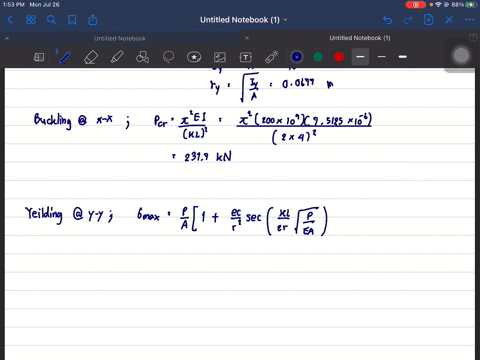 1:53 PM Mon Jul 26
88%
Untitled Notebook (1)
Untitled Notebook
Untitled Notebook (1)
ry = √(Iy/A) = 0.0699 m
Buckling @ x-x ; Pcr = π²EI/(KL)² = π²(200×10⁹)(9.5125×10⁻⁶)/(2×4)²
= 231.9 kN
Yeilding @ y-y ; σmax = P/A [1 + ec/r² sec (KL/2r √(P/EA))